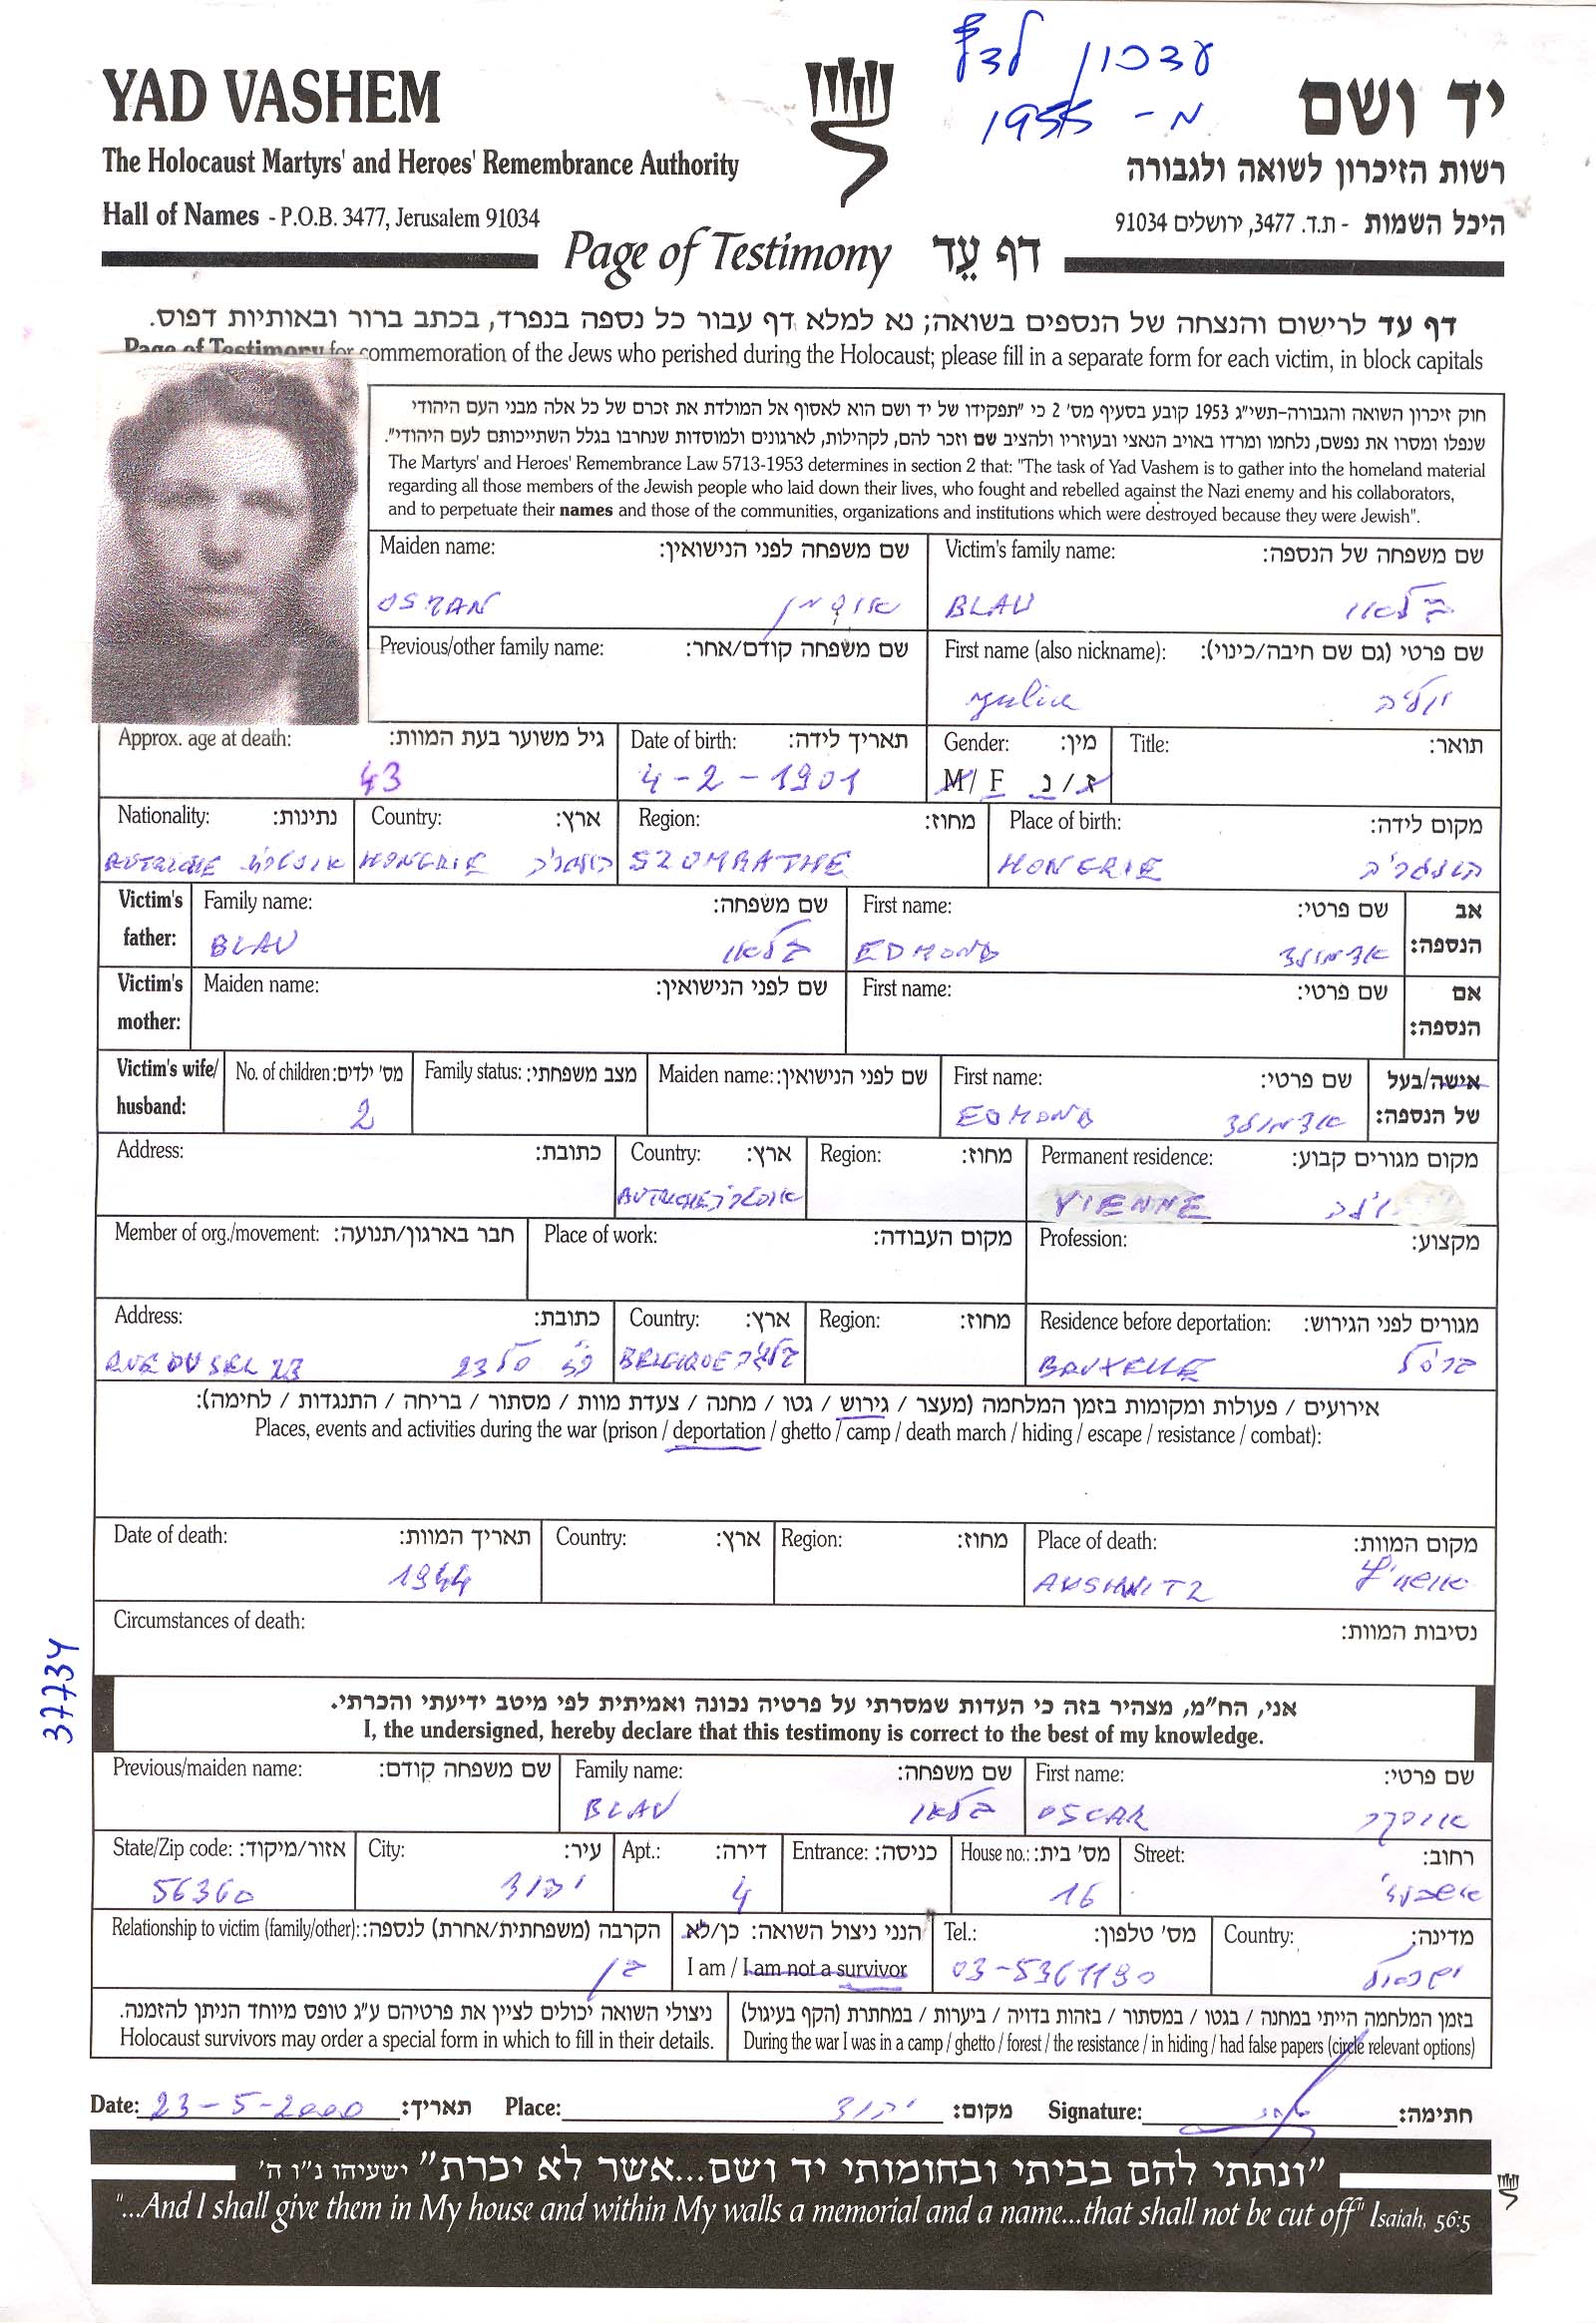 עדכון לדף
מ- 1955
YAD VASHEM
יד ושם
The Holocaust Martyrs' and Heroes' Remembrance Authority
רשות הזיכרון לשואה ולגבורה
Hall of Names - P.O.B. 3477, Jerusalem 91034
היכל השמות - ת.ד. 3477, ירושלים 91034
Page of Testimony דף עֵד
דף עד לרישום והנצחה של הנספים בשואה; נא למלא דף עבור כל נספה בנפרד, בכתב ברור ובאותיות דפוס.
Page of Testimony for commemoration of the Jews who perished during the Holocaust; please fill in a separate form for each victim, in block capitals
חוק זיכרון השואה והגבורה-תשי״ג 1953 קובע בסעיף מס׳ 2 כי ״תפקידו של יד ושם הוא לאסוף אל המולדת את זכרם של כל אלה מבני העם היהודי
שנפלו ומסרו את נפשם, נלחמו ומרדו באויב הנאצי ובעוזריו ולהציב שם וזכר להם, לקהילות, לארגונים ולמוסדות שנחרבו בגלל השתייכותם לעם היהודי״.
The Martyrs' and Heroes' Remembrance Law 5713-1953 determines in section 2 that: "The task of Yad Vashem is to gather into the homeland material
regarding all those members of the Jewish people who laid down their lives, who fought and rebelled against the Nazi enemy and his collaborators,
and to perpetuate their names and those of the communities, organizations and institutions which were destroyed because they were Jewish".
Maiden name: שם משפחה לפני הנישואין: Victim's family name: שם משפחה של הנספה:
OSMAN BLAU בלאו
Previous/other family name: שם משפחה קודם/אחר: First name (also nickname): שם פרטי (גם שם חיבה/כינוי):
Yulia יוליה
Approx. age at death: גיל משוער בעת המוות: Date of birth: תאריך לידה: Gender: מין: Title: תואר:
43 4-2-1901 M/ F ז/נ
Nationality: נתינות: Country: ארץ: Region: מחוז: Place of birth: מקום לידה:
AUTRICHE HONGRIE הונגריה SZOMBATHE HONGRIE הונגריה
Victim's father: Family name: שם משפחה: First name: שם פרטי: אב הנספה:
BLAU בלאו EDMOND אדמונד
Victim's mother: Maiden name: שם לפני הנישואין: First name: שם פרטי: אם הנספה:
Victim's wife/ husband: No. of children: מס׳ ילדים: Family status: מצב משפחתי: Maiden name: שם לפני הנישואין: First name: שם פרטי: אישה/בעל של הנספה:
2 EDMOND אדמונד
Address: כתובת: Country: ארץ: Region: מחוז: Permanent residence: מקום מגורים קבוע:
AUTRICHE אוסטריה VIENNE וינה
Member of org./movement: חבר בארגון/תנועה: Place of work: מקום העבודה: Profession: מקצוע:
Address: כתובת: Country: ארץ: Region: מחוז: Residence before deportation: מגורים לפני הגירוש:
RUE DU SEL 23 סל 23 BELGIQUE בלגיה BRUXELLE בריסל
אירועים / פעולות ומקומות בזמן המלחמה (מעצר / גירוש / גטו / מחנה / צעדת מוות / מסתור / בריחה / התנגדות / לחימה):
Places, events and activities during the war (prison / deportation / ghetto / camp / death march / hiding / escape / resistance / combat):
Date of death: תאריך המוות: Country: ארץ: Region: מחוז: Place of death: מקום המוות:
1944 AUSHWITZ אושוויץ
Circumstances of death: נסיבות המוות:
37734
אני, הח״מ, מצהיר בזה כי העדות שמסרתי על פרטיה נכונה ואמיתית לפי מיטב ידיעתי והכרתי.
I, the undersigned, hereby declare that this testimony is correct to the best of my knowledge.
Previous/maiden name: שם משפחה קודם: Family name: שם משפחה: First name: שם פרטי:
BLAU בלאו OSCAR אוסקר
State/Zip code: אזור/מיקוד: City: עיר: Apt.: דירה: Entrance: כניסה: House no.: מס׳ בית: Street: רחוב:
56360 יהוד 4 16 אשכנזי
Relationship to victim (family/other): הקרבה (משפחתית/אחרת) לנספה: הנני ניצול השואה: כן/לא Tel.: מס׳ טלפון: Country: מדינה:
בן I am / I am not a survivor 03-5361190 ישראל
ניצולי השואה יכולים לציין את פרטיהם ע״ג טופס מיוחד הניתן להזמנה. בזמן המלחמה הייתי במחנה / בגטו / במסתור / בזהות בדויה / ביערות / במחתרת (הקף בעיגול)
Holocaust survivors may order a special form in which to fill in their details. During the war I was in a camp / ghetto / forest / the resistance / in hiding / had false papers (circle relevant options)
Date: 23-5-2000 תאריך: Place: יהוד מקום: Signature: חתימה:
״ונתתי להם בביתי ובחומותי יד ושם...אשר לא יכרת״ ישעיהו נ״ו ה׳
"...And I shall give them in My house and within My walls a memorial and a name...that shall not be cut off" Isaiah, 56:5